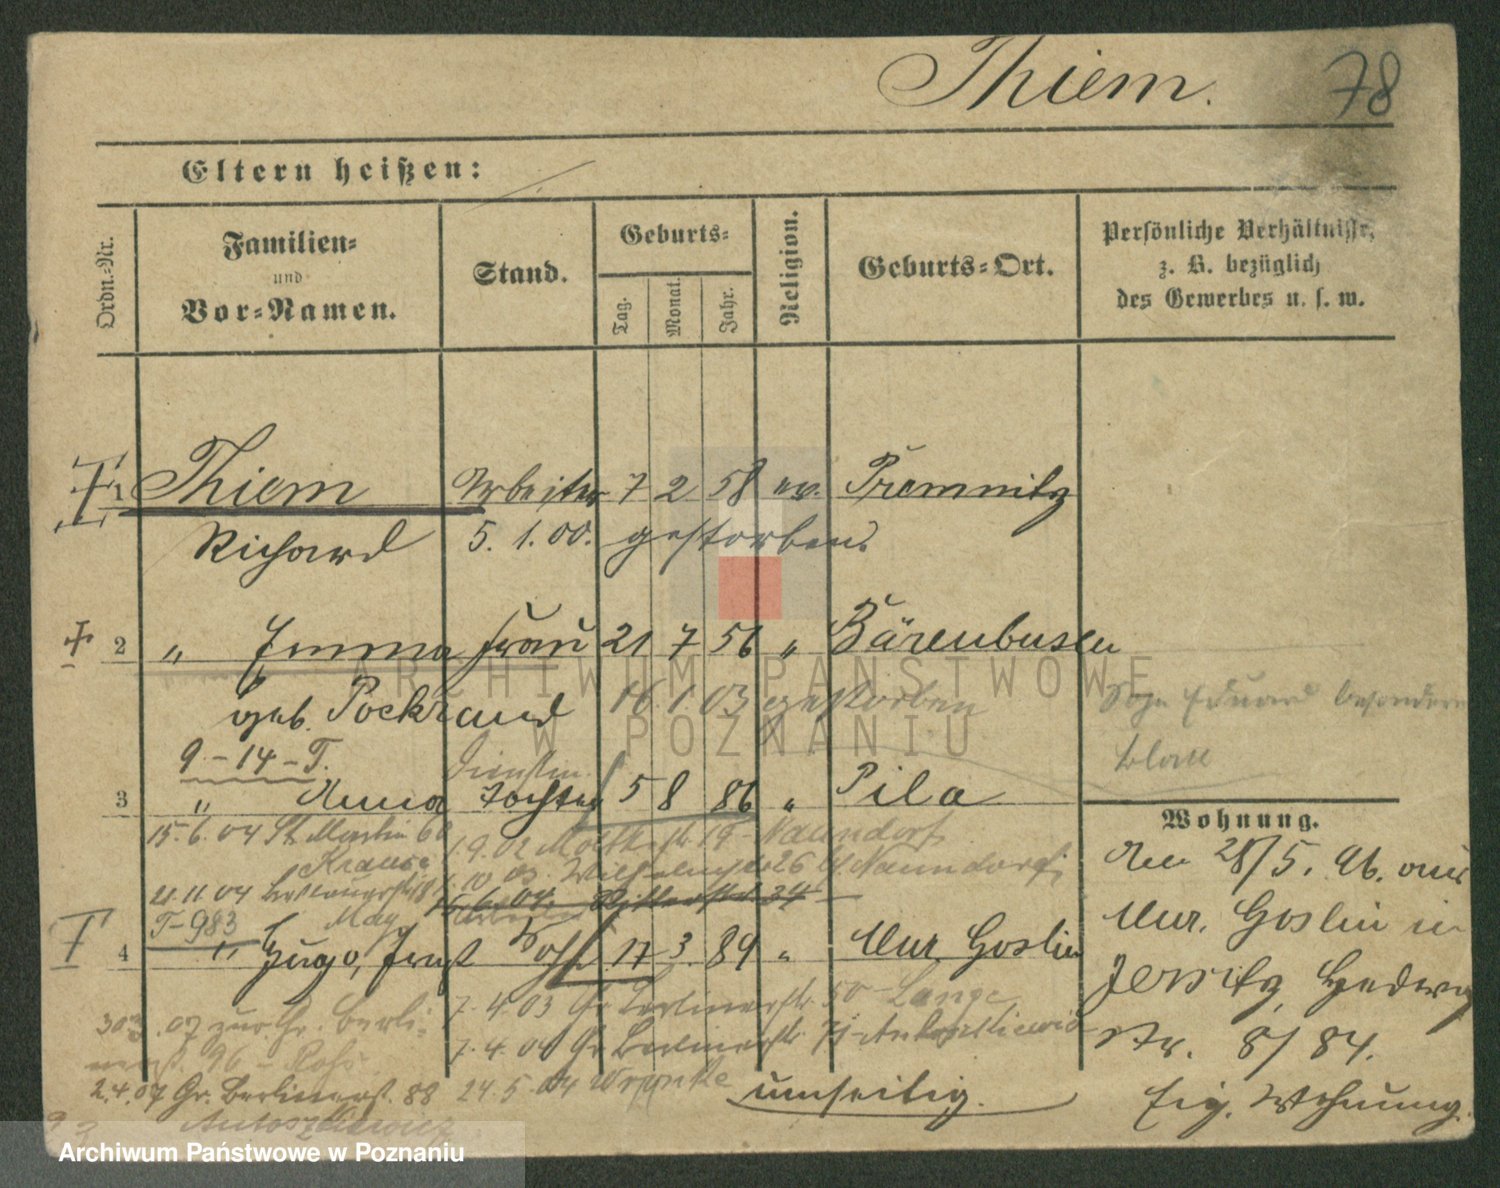 Thiem. 78
Eltern heißen:
Ordn.-Nr.
Familien-
und
Vor-Namen.
Stand.
Geburts-
Tag.
Monat.
Jahr.
Religion.
Geburts-Ort.
Persönliche Verhältnisse,
z. B. bezüglich
des Gewerbes u. s. w.
1 Thiem Arbeiter 7 2 58 ev. Premnitz
Richard 5. 1. 00. gestorben.
2 " Emma Frau 21 7 56 " Bärenbusch
geb. Pockrand 16.1.03 gestorben
Sohn Eduard besonderes
Blatt
9-14-T.
3 " Anna Tochter 5 8 86 " Pila
15.6.04 St. Martin 60
Krause
1.9.02 Moltkestr. 19 - Naundorf
21.11.04
May
T-983
4 " Hugo, Ernst Sohn 17 3. 89 " Mur. Goslin
7.4.03 Gr. Berlinerstr. 50 - Lange
7.4.04 Gr. Berlinerstr.
07 zur Gr. Berli-
nerst. 96 -
2.4.07 Gr. Berlinerst. 88 24.5.04 Wronke
Antoszkiewicz
umseitig.
Wohnung.
Am 28/5. 96. aus
Mur. Goslin in
Jersitz, Hedwig
Str. 8/84.
Eig. Wohnung.
ARCHIWUM PAŃSTWOWE
W POZNANIU
Archiwum Państwowe w Poznaniu